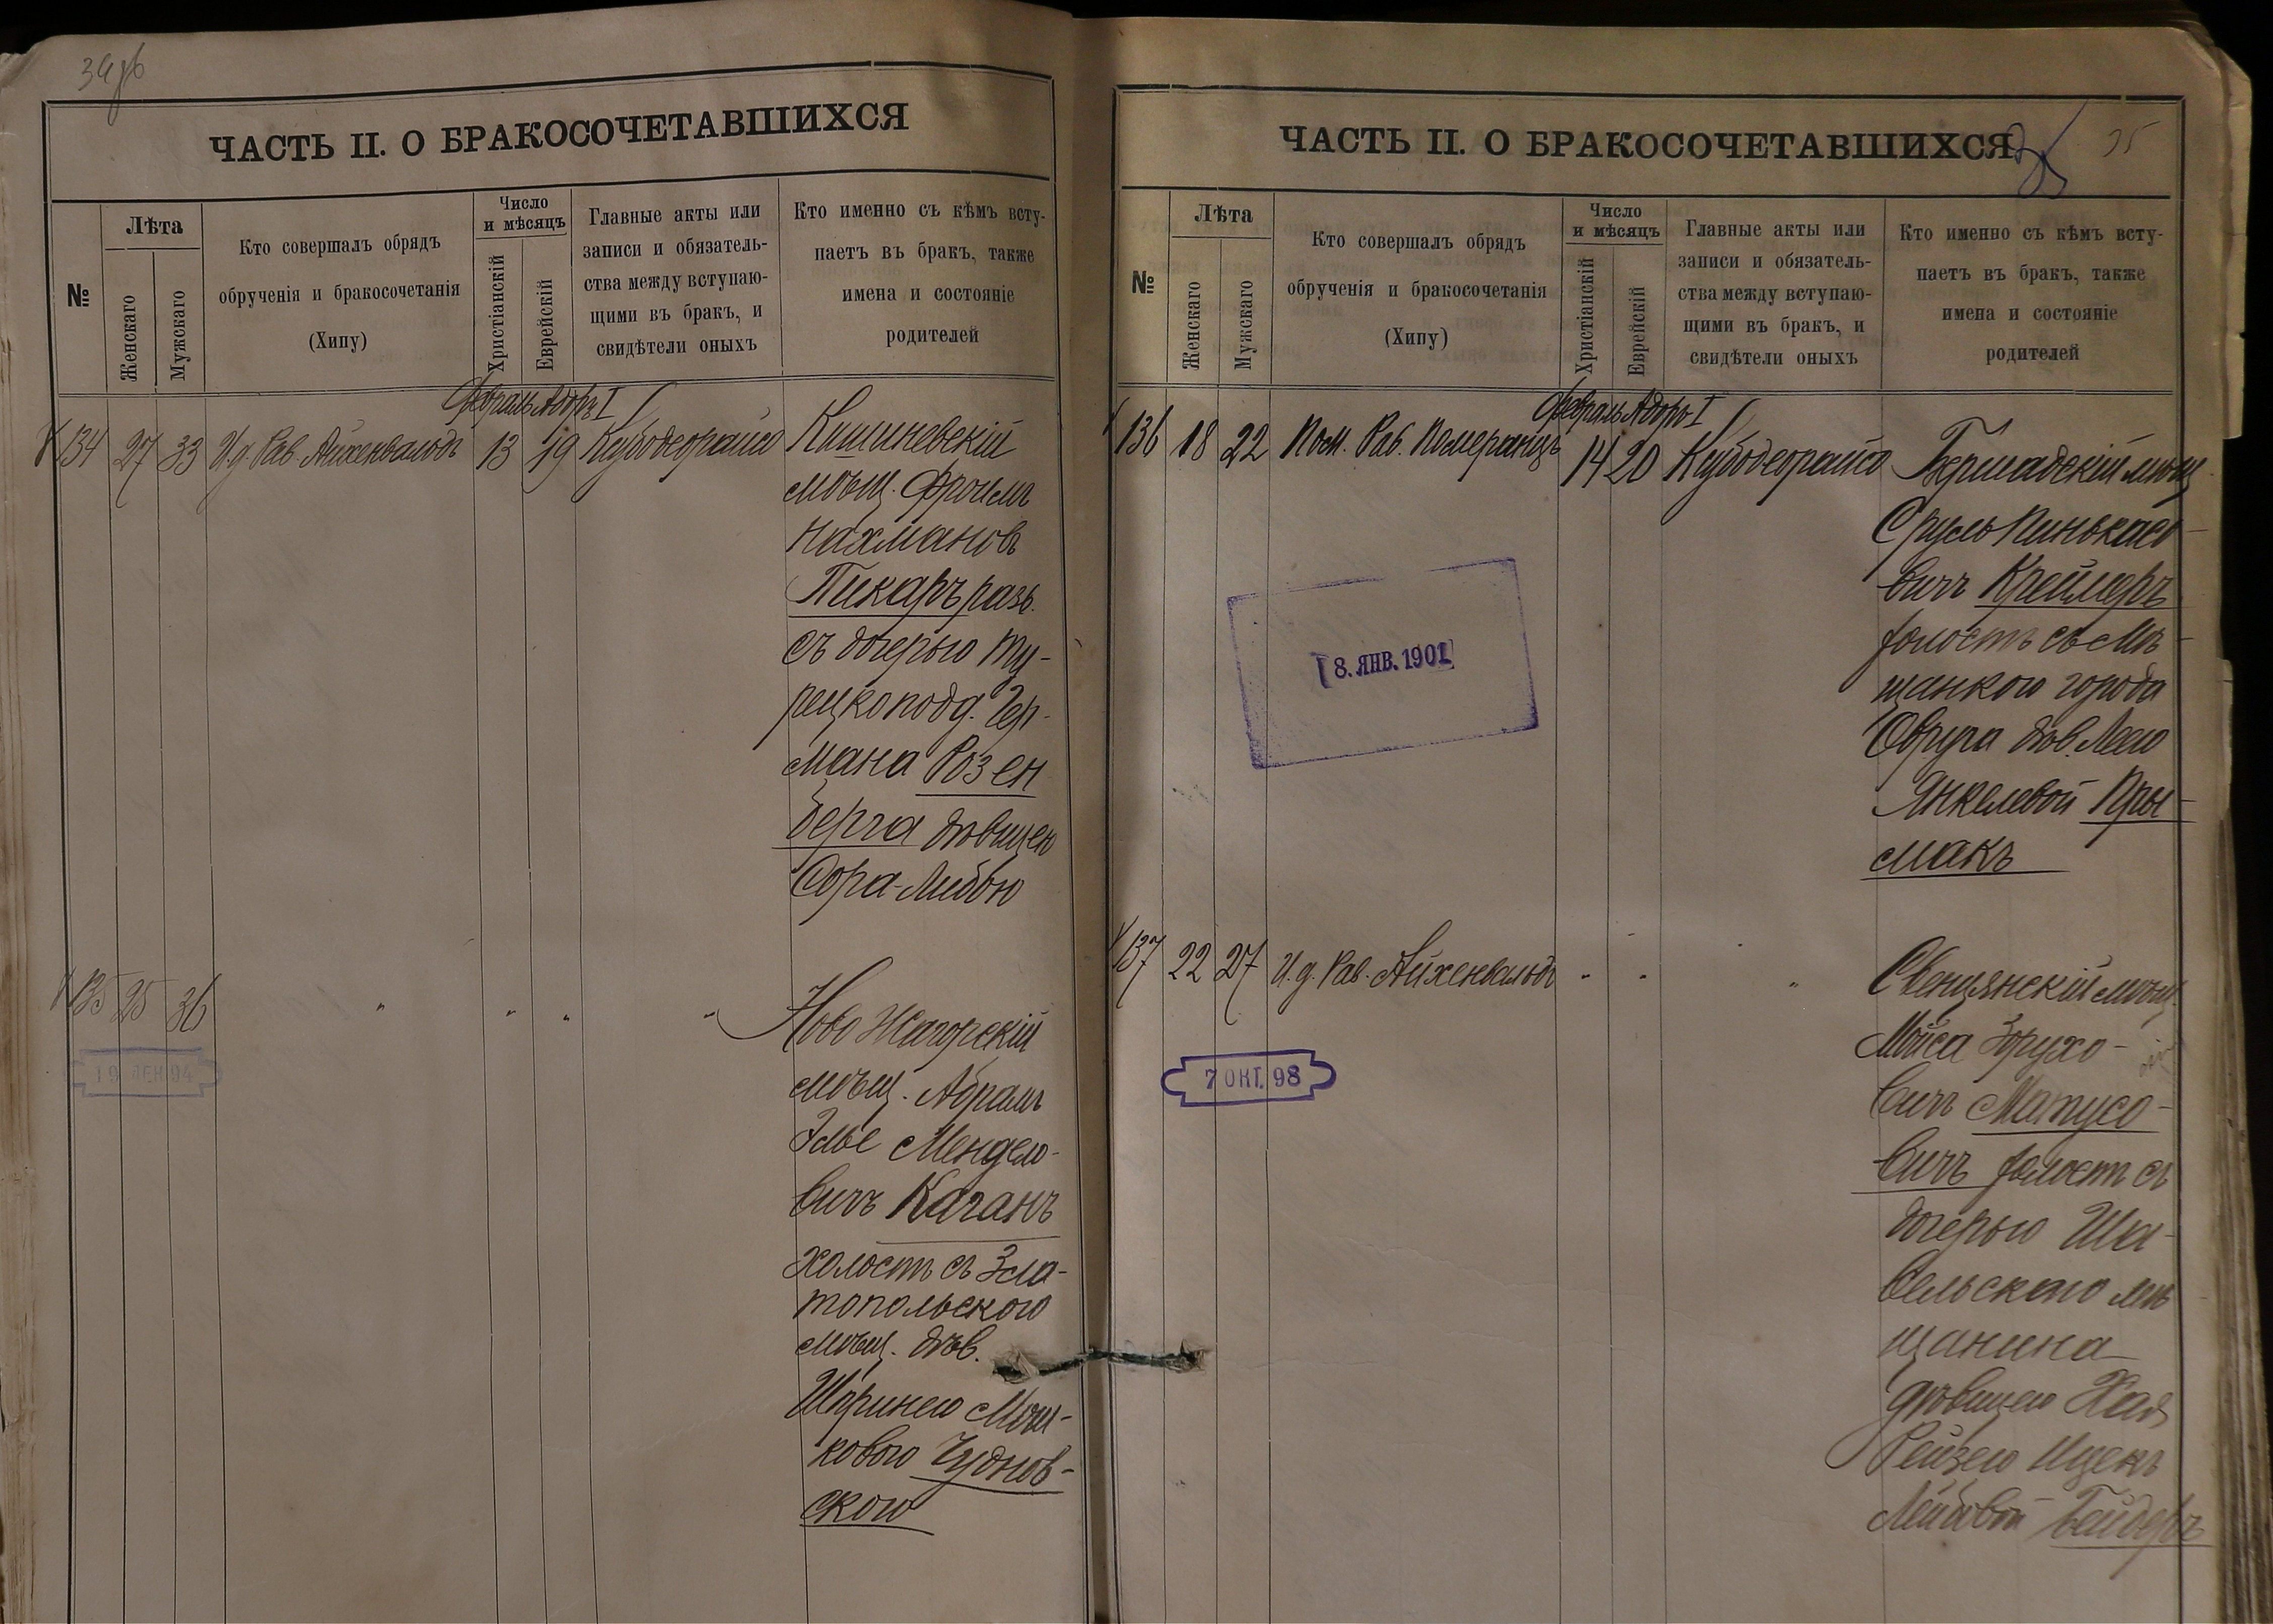 34об
ЧАСТЬ II. О БРАКОСОЧЕТАВШИХСЯ
№
Лѣта
Женскаго
Мужскаго
Кто совершалъ обрядъ
обрученія и бракосочетанія
(Хипу)
Число
и мѣсяцъ
Христіанскій
Еврейскій
Главные акты или
записи и обязатель-
ства между вступаю-
щими въ бракъ, и
свидѣтели оныхъ
Кто именно съ кѣмъ всту-
паетъ въ бракъ, также
имена и состояніе
родителей
Февраль Адоръ I
134 27 33 И.д. Рав. Айхенвальдъ 13 19 Кубодеорайсо
Кишиневскій
мѣщ. Фроимъ
Нахмановъ
Пикаръ разв.
съ дочерью ту-
рецкопод. Гер-
мана Розен
берга дѣвицею
Сора-Либою
135 25 36 " " " "
Ново Жагорскій
мѣщ. Абрамъ
Элье Мендело-
вичъ Каганъ
холостъ съ Зла-
топольского
мѣщ. дѣв.
Шпринею Мош-
ковою Чуднов-
скою
ЧАСТЬ II. О БРАКОСОЧЕТАВШИХСЯ
35
№
Лѣта
Женскаго
Мужскаго
Кто совершалъ обрядъ
обрученія и бракосочетанія
(Хипу)
Число
и мѣсяцъ
Христіанскій
Еврейскій
Главные акты или
записи и обязатель-
ства между вступаю-
щими въ бракъ, и
свидѣтели оныхъ
Кто именно съ кѣмъ всту-
паетъ въ бракъ, также
имена и состояніе
родителей
Февраль Адоръ I
136 18 22 Пом. Рав. Померанцъ 14 20 Кубодеорайсо
Бершадскій мѣщ
Сруль Пинькасо-
вичъ Креймеръ
холостъ съ мѣ-
щанкою города
Овруча дѣв. Леею
Янкелевой Пры-
макъ
8. ЯНВ. 1901
137 22 27 И.д. Рав. Айхенвальдъ " " "
7 ОКТ. 98
Свенцянскій мѣщ.
Мойса Борухо-
вичъ Матусо-
вичъ холостъ съ
дочерью Ша-
вельскаго мѣ
щанина
дѣвицею Хая
Рейзею Ицекъ
Лейбовой Бейдеръ